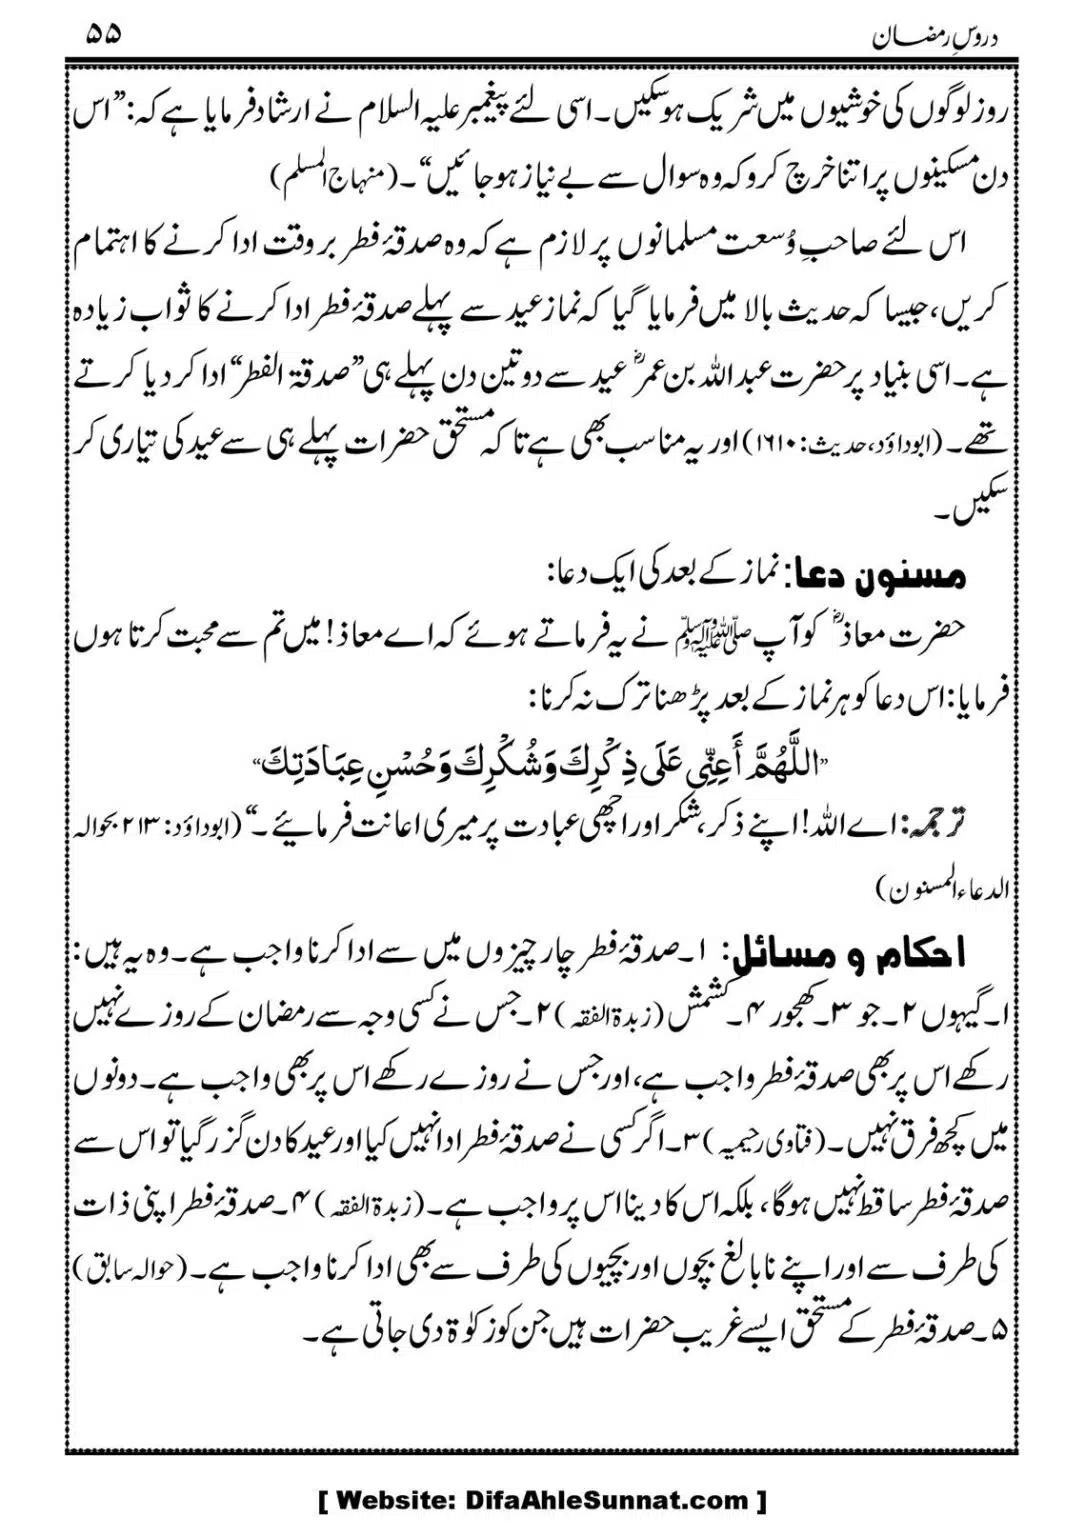 دروسِ رمضان
۵۵
روز لوگوں کی خوشیوں میں شریک ہوسکیں۔ اسی لئے پیغمبر علیہ السلام نے ارشاد فرمایا ہے کہ: ”اس
دن مسکینوں پر اتنا خرچ کرو کہ وہ سوال سے بے نیاز ہوجائیں“۔ (منہاج المسلم)
اس لئے صاحبِ وُسعت مسلمانوں پر لازم ہے کہ وہ صدقۂ فطر بروقت ادا کرنے کا اہتمام
کریں، جیسا کہ حدیث بالا میں فرمایا گیا کہ نماز عید سے پہلے صدقۂ فطر ادا کرنے کا ثواب زیادہ
ہے۔ اسی بنیاد پر حضرت عبداللہ بن عمرؓ عید سے دو تین دن پہلے ہی ”صدقۃ الفطر“ ادا کردیا کرتے
تھے۔ (ابوداؤد، حدیث: ۱۶۱۰) اور یہ مناسب بھی ہے تاکہ مستحق حضرات پہلے ہی سے عید کی تیاری کر
سکیں۔
مسنون دعا: نماز کے بعد کی ایک دعا:
حضرت معاذؓ کو آپ ﷺ نے یہ فرماتے ہوئے کہ اے معاذ! میں تم سے محبت کرتا ہوں
فرمایا: اس دعا کو ہر نماز کے بعد پڑھنا ترک نہ کرنا:
”اللَّهُمَّ أَعِنِّي عَلَى ذِكْرِكَ وَشُكْرِكَ وَحُسْنِ عِبَادَتِكَ“
ترجمہ: اے اللہ! اپنے ذکر، شکر اور اچھی عبادت پر میری اعانت فرمائیے۔“ (ابوداؤد: ۲۱۳ بحوالہ
الدعاء المسنون)
احکام و مسائل: ۱۔ صدقۂ فطر چار چیزوں میں سے ادا کرنا واجب ہے۔ وہ یہ ہیں:
۱۔ گیہوں ۲۔ جو ۳۔ کھجور ۴۔ کشمش (زبدۃ الفقہ) ۲۔ جس نے کسی وجہ سے رمضان کے روزے نہیں
رکھے اس پر بھی صدقۂ فطر واجب ہے، اور جس نے روزے رکھے اس پر بھی واجب ہے۔ دونوں
میں کچھ فرق نہیں۔ (فتاوی رحیمیہ) ۳۔ اگر کسی نے صدقۂ فطر ادا نہیں کیا اور عید کا دن گزر گیا تو اس سے
صدقۂ فطر ساقط نہیں ہوگا، بلکہ اس کا دینا اس پر واجب ہے۔ (زبدۃ الفقہ) ۴۔ صدقۂ فطر اپنی ذات
کی طرف سے اور اپنے نابالغ بچوں اور بچیوں کی طرف سے بھی ادا کرنا واجب ہے۔ (حوالہ سابق)
۵۔ صدقۂ فطر کے مستحق ایسے غریب حضرات ہیں جن کو زکوٰۃ دی جاتی ہے۔
[ Website: DifaAhleSunnat.com ]